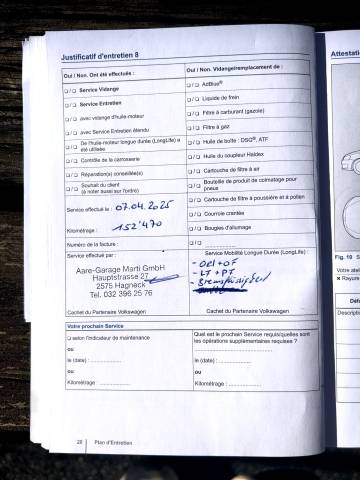 Justificatif d'entretien 8
Oui / Non. Ont été effectués :
❑ / ❑ Service Vidange
❑ / ❑ Service Entretien
❑ / ❑ avec vidange d'huile-moteur
❑ / ❑ avec Service Entretien étendu
❑ / ❑ De l'huile-moteur longue durée (LongLife) a été utilisée
❑ / ❑ Contrôle de la carrosserie
❑ / ❑ Réparation(s) conseillée(s)
❑ / ❑ Souhait du client
(à noter aussi sur l'ordre)
Service effectué le : 07.04.2025
Kilométrage : 152'470
Numéro de la facture :
Service effectué par :
Aare-Garage Marti GmbH
Hauptstrasse 27
2575 Hagneck
Tel. 032 396 25 76
Cachet du Partenaire Volkswagen
Oui / Non. Vidange/remplacement de :
❑ / ❑ AdBlue®
❑ / ❑ Liquide de frein
❑ / ❑ Filtre à carburant (gazole)
❑ / ❑ Filtre à gaz
❑ / ❑ Huile de boîte : DSG®, ATF
❑ / ❑ Huile du coupleur Haldex
❑ / ❑ Cartouche de filtre à air
❑ / ❑ Bouteille de produit de colmatage pour pneus
❑ / ❑ Cartouche de filtre à poussière et à pollen
❑ / ❑ Courroie crantée
❑ / ❑ Bougies d'allumage
❑ / ❑ ....................
Service Mobilité Longue Durée (LongLife) :
- OEL + OF
- LT + PT
- Bremsflüssigkeit
Cachet du Partenaire Volkswagen
Votre prochain Service
❑ selon l'indicateur de maintenance
ou
le (date) : ....................
ou
Kilométrage : ....................
Quel est le prochain Service requis/quelles sont les opérations supplémentaires requises ?
le (date) : ....................
ou
Kilométrage : ....................
28 Plan d'Entretien
Attestation
Fig. 10
Votre atel
× Rayure
Descripti